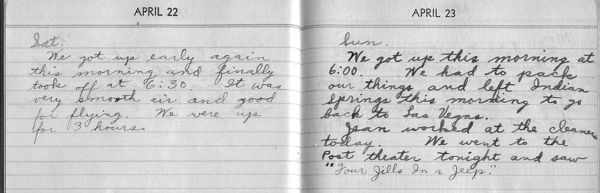 APRIL 22
Sat.
We got up early again
this morning and finally
took off at 6:30. It was
very smooth air and good
for flying. We were up
for 3 hours.
APRIL 23
Sun.
We got up this morning at
6:00. We had to pack
our things and left Indian
Springs this morning to go
back to Las Vegas.
Jean worked at the cleaners
today. We went to the
Post theater tonight and saw
"Four Jills In a Jeep."